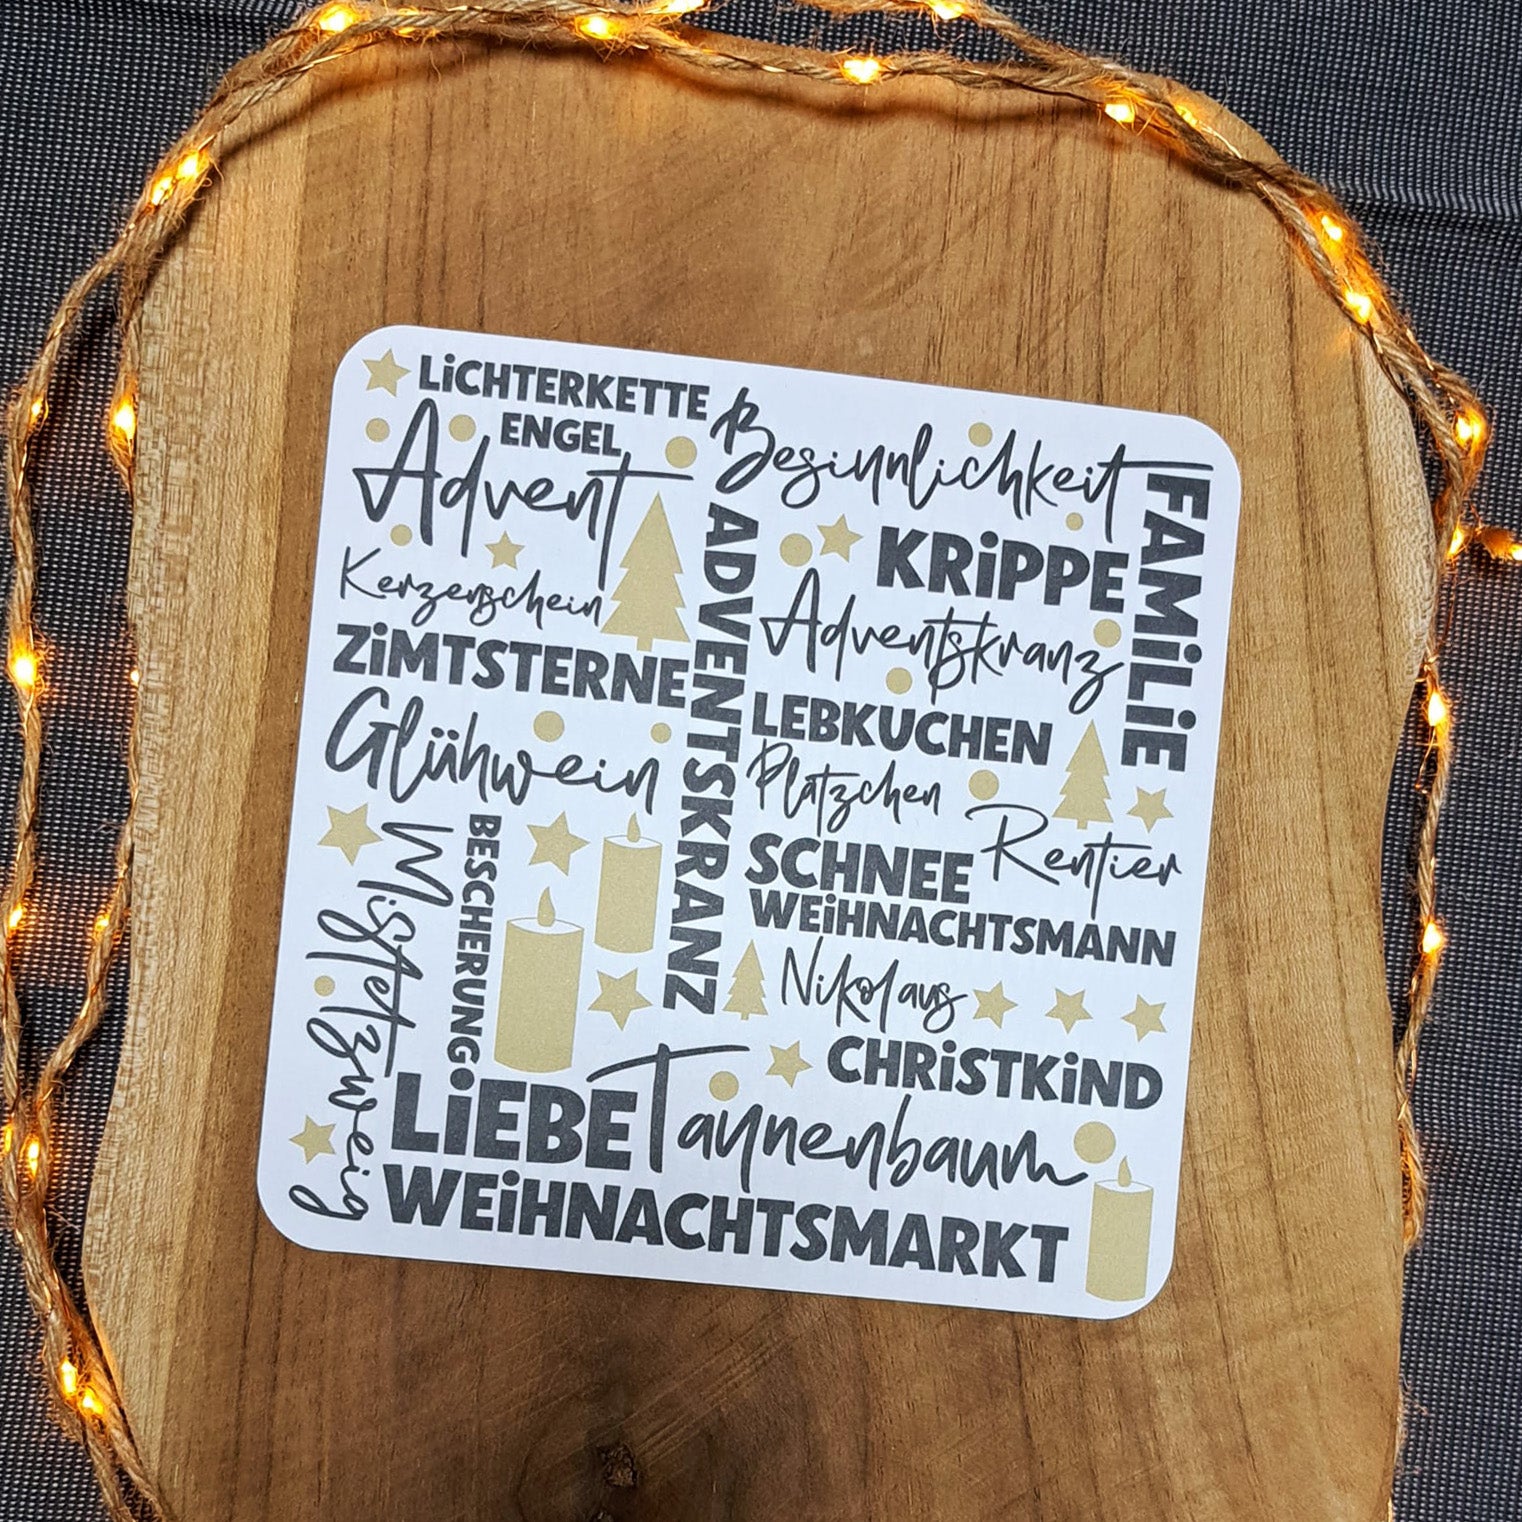 LiCHTERKETTE
ENGEL
Advent
Besinnlichkeit
FAMiLiE
KRiPPE
Kerzenschein
ADVENTSKRANZ
Adventskranz
ZiMTSTERNE
LEBKUCHEN
Glühwein
Plätzchen
Rentier
SCHNEE
WEiHNACHTSMANN
Mistelzweig
BESCHERUNG
Nikolaus
CHRiSTKiND
LiEBE
Tannenbaum
WEiHNACHTSMARKT